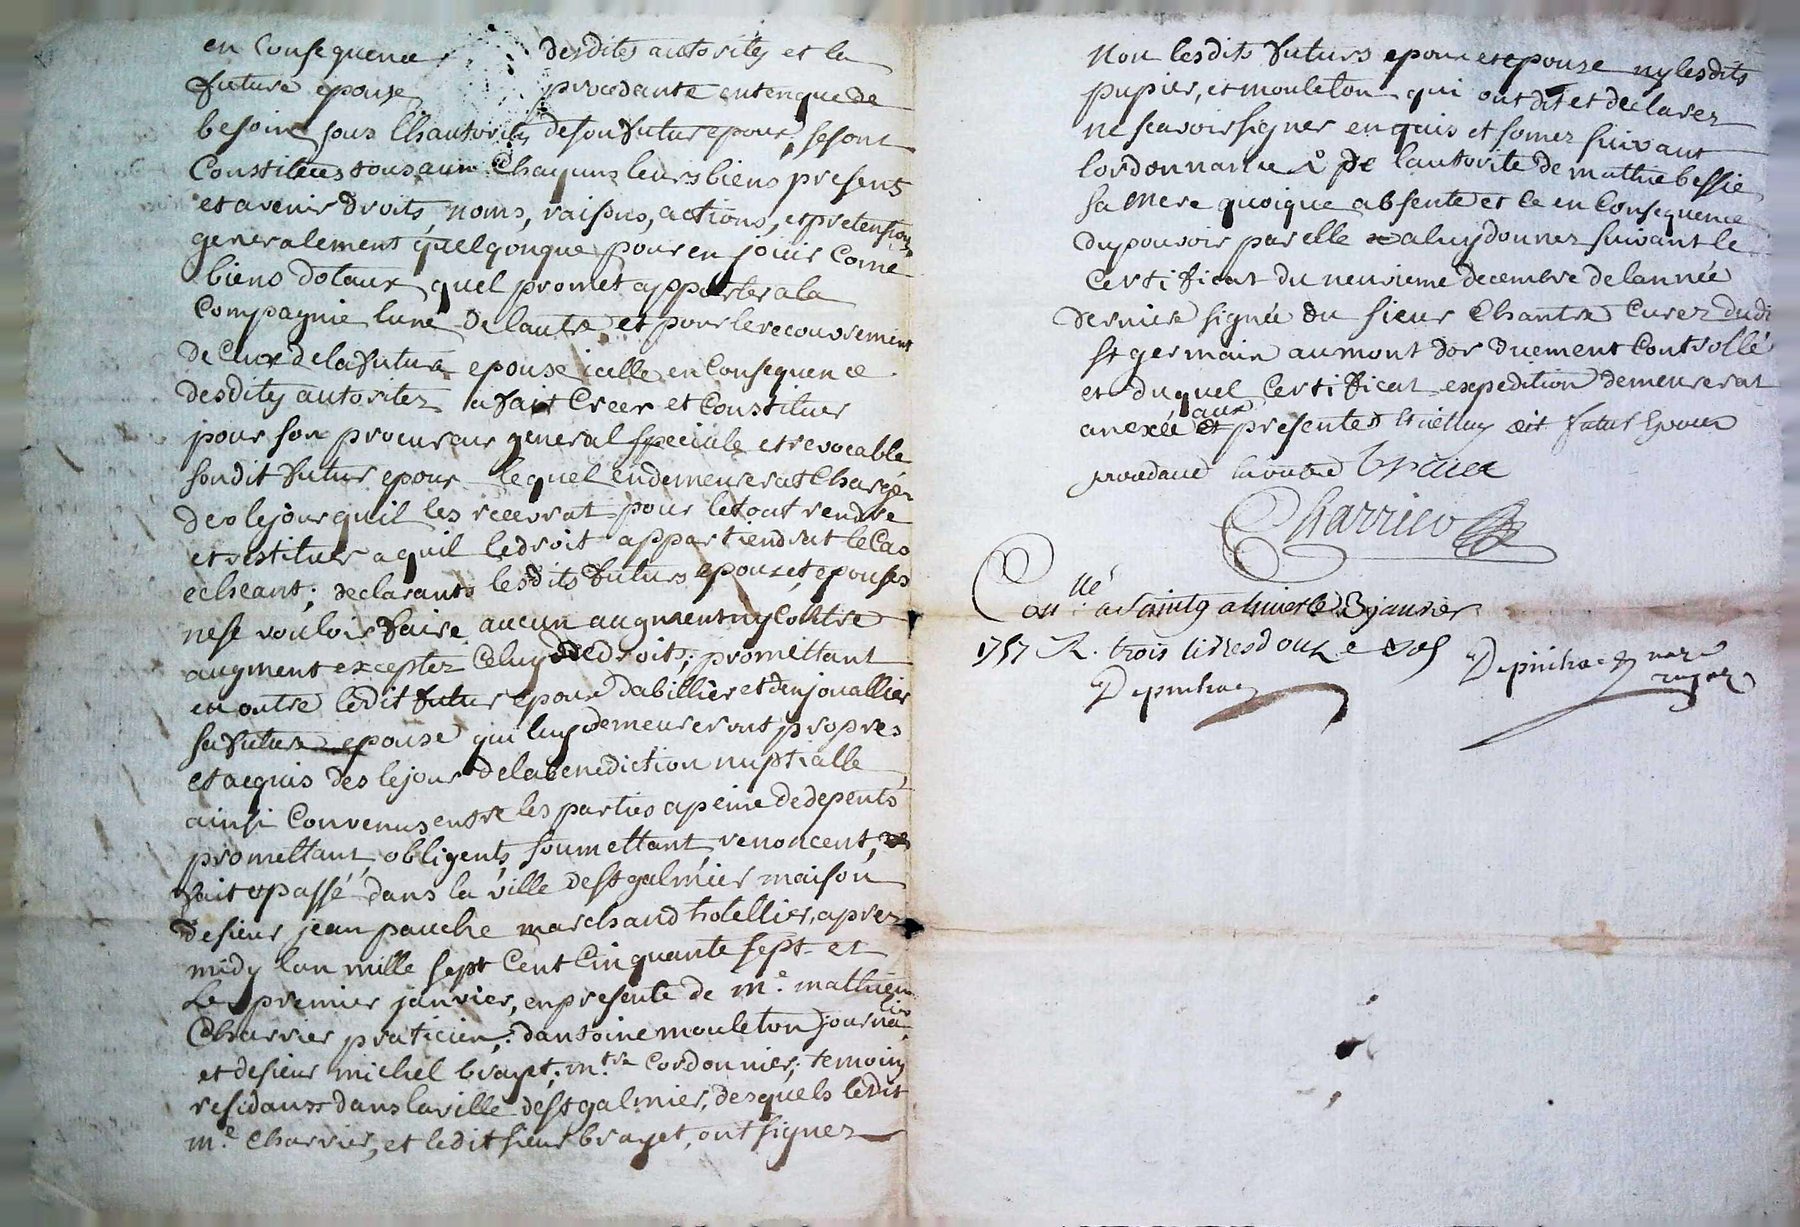 en Consequence desdites autorites et la
future epouse procedante entenque de
besoin sous lhautorité desonfutur epoux, sesont
Constitues tous aun Chaquns leurs biens presents
et avenir droits, noms, raisons, actions, et pretensions
generalement quelqonque pour en jouir Come
biens dotaux quel promet apporter a la
Compagnie lune de lautre et pour le recouvrement
de Ceux delafuture epouse icelle en Consequence
desdites autoritez a fait Creer et Constituer
pour son procureur general speciale et revocable
sondit futur epoux lequel endemeurerat Charger
des lejour quil les recevrat pour letout rendre
et restituer a quil ledroit appartiendrat le Cas
echeant; declarants lesdits futurs epoux et epouses
nese vouloir faire aucun augment ny Contre
augment excepter Celuy de Droit; promettant
en outre ledit futur epoux dabillier et denjouallier
sa future epouse qui luy demeureront propres
et acquis des lejour de la benediction nuptialle
ainsi Convenus entre les parties a peine de depents
promettant, obligents, soumettant, renoncent, &
fait et passé dans la ville de st galmier maison
de sieur jean pauche marchand hotellier, aprez
midy lan mille sept Cent Cinquante sept et
Le premier janvier, en presente de me. mathieu
Charrier praticien, dantoine mouleton journalier
et de sieur michel brayet, mtre Cordonnier; temoins
residants dans la ville de st galmier, desquels ledit
me Charrier, et ledit sieur brayet, ont signez
Non lesdits futurs epoux et epouse ny lesdits
pupier, et mouleton qui ont dit et declarer
ne scavoir signer enquis et somez suivant
lordonnance de lautorite de mathie bessie
sa mere quoique absente et ce en Consequence
du pouvoir par elle a luy donner suivant le
Certificat du neuvieme decembre de lannée
derniere signée du sieur Chantre Curez dudi
st germain au mont dor duement Controllé
et duquel Certificat expedition demeurerat
anexée aux presentes et icelluy dit futur Epoux
procedant
Charrier
Conllé a Saint galmier le 3 janvier
1757 R. trois livres douze sols
Depinhac
Depinhac